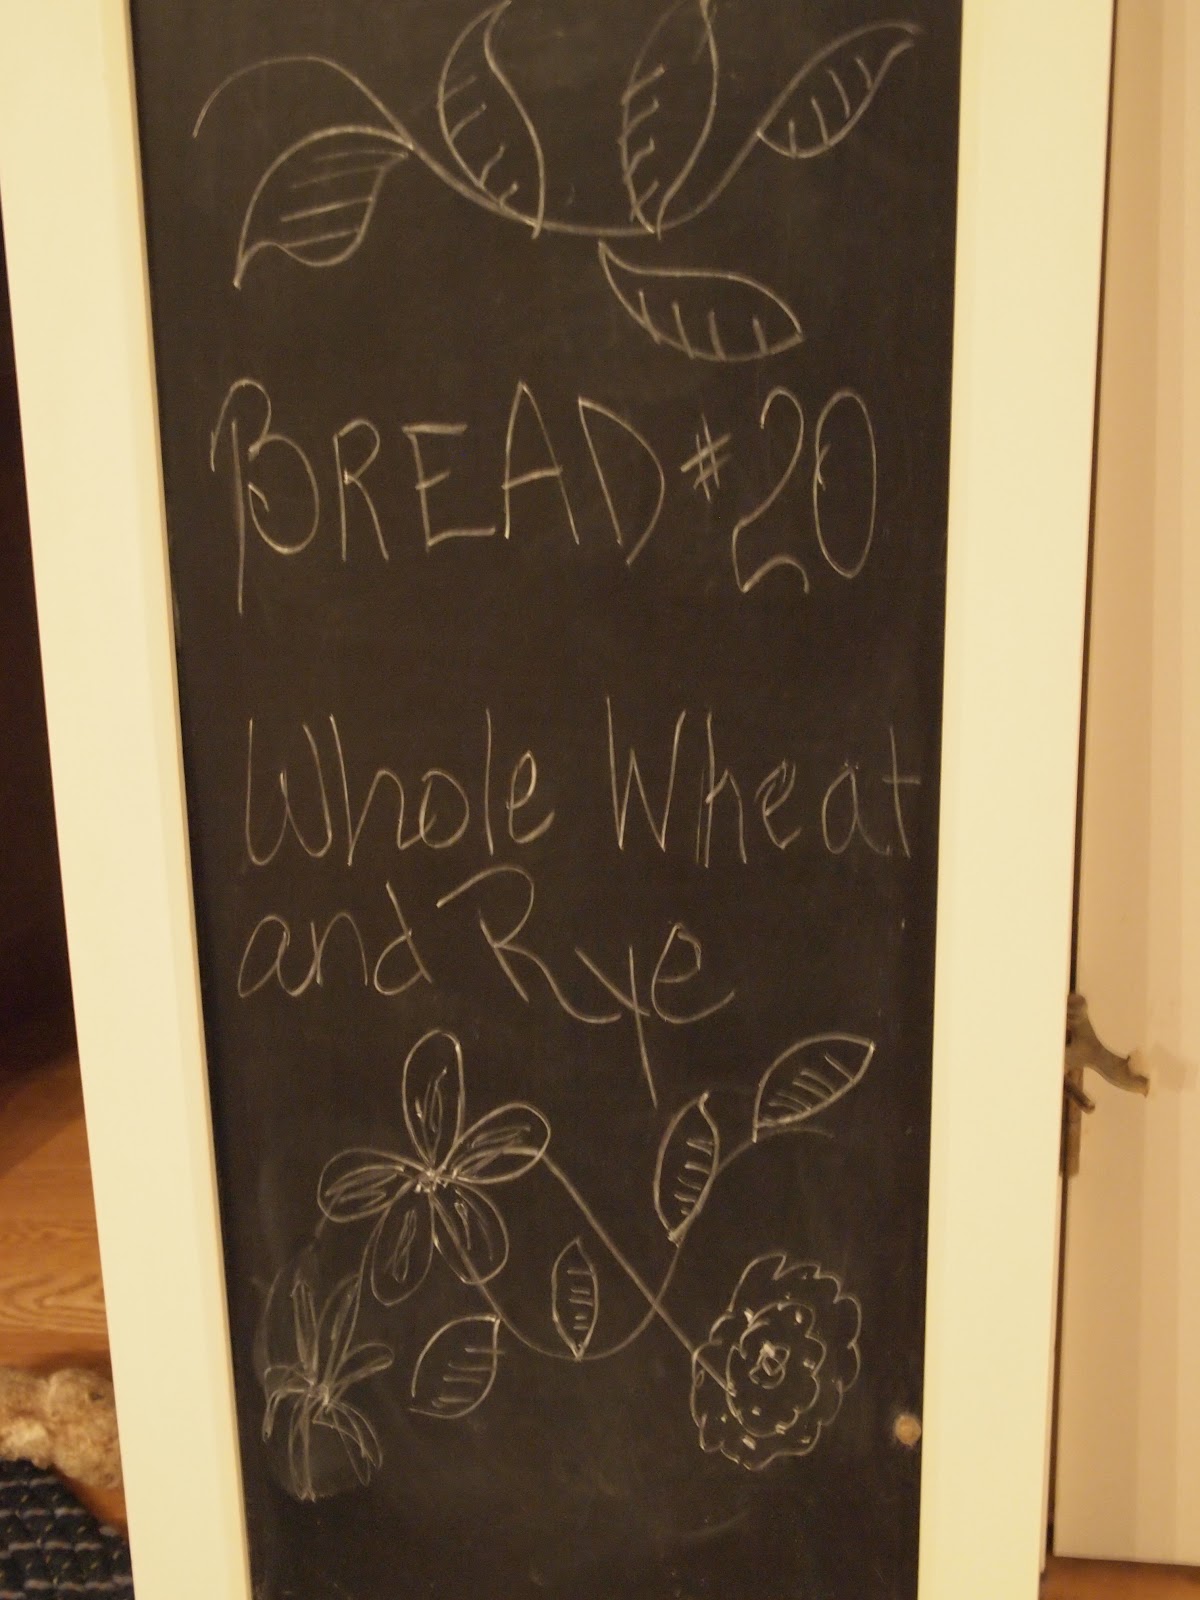 BREAD #20
Whole Wheat
and Rye